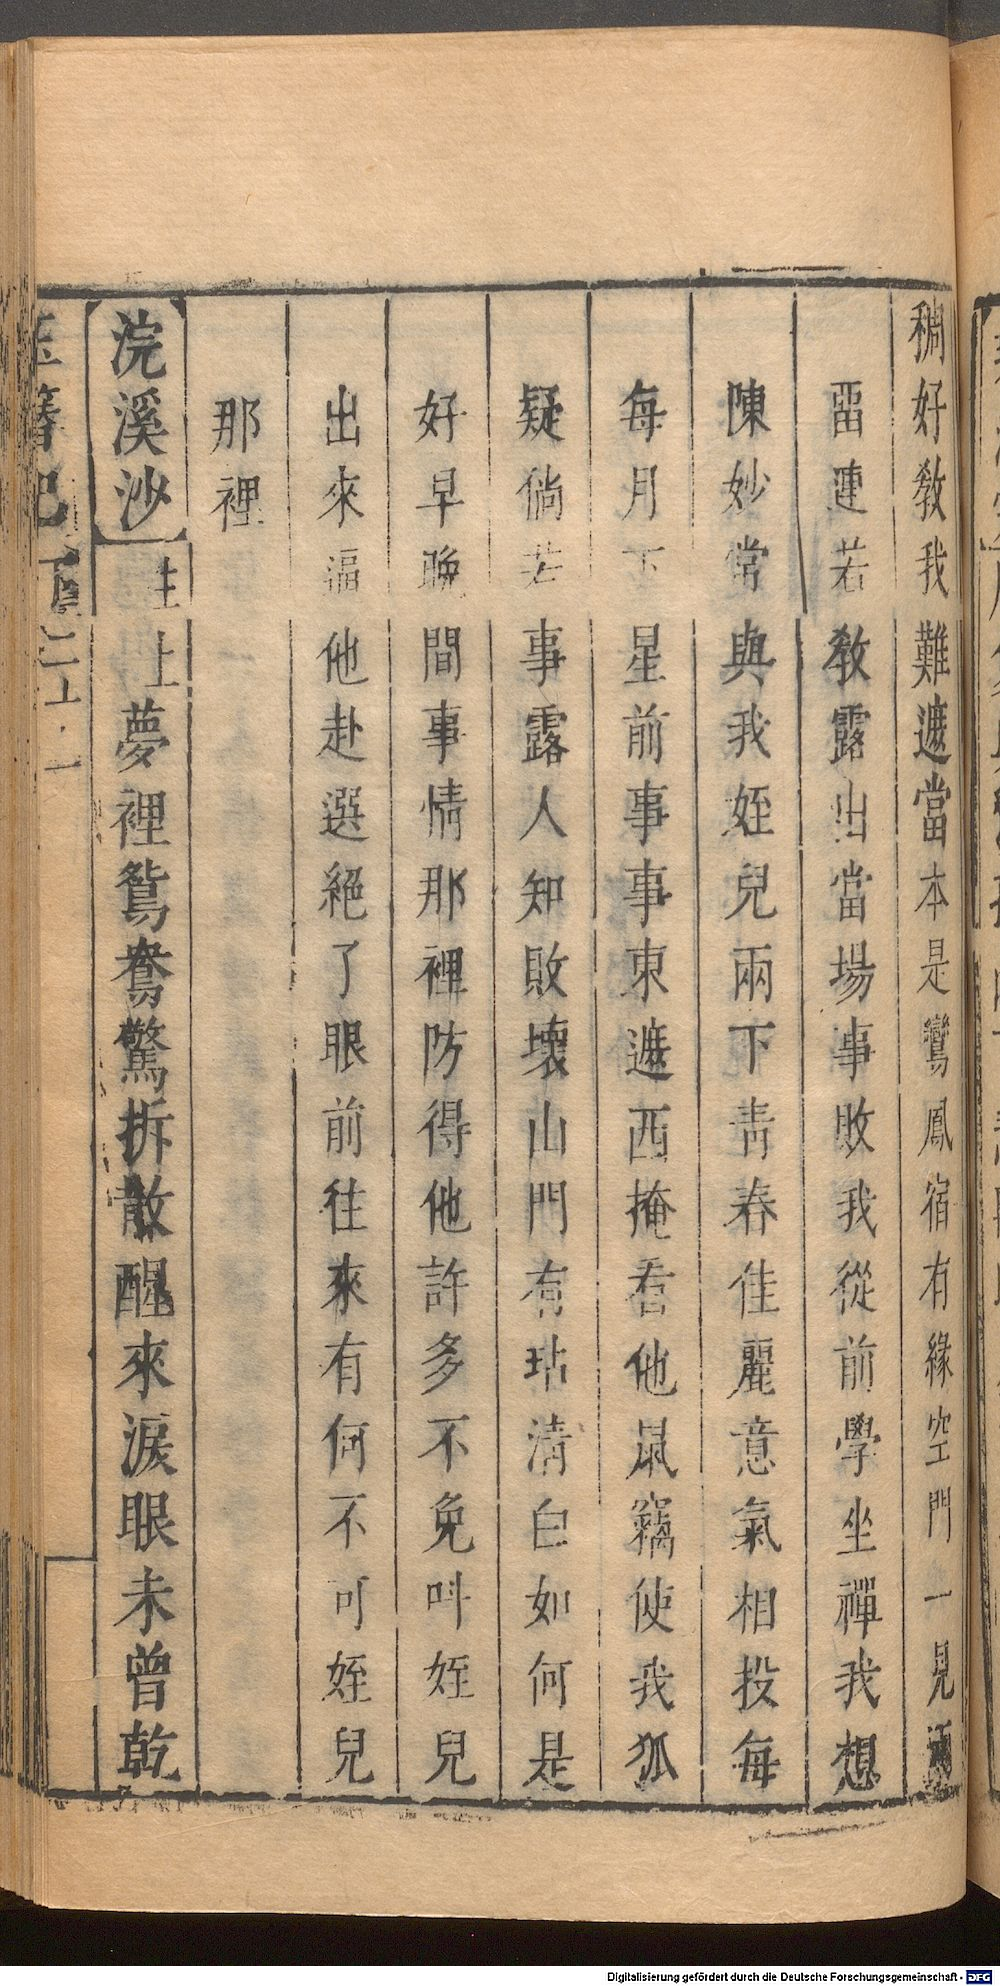 稠好教我難遮當本是鸞鳳宿有緣空門一見
畱連若教露出當場事敗我從前學坐禪我想
陳妙常與我姪兒兩下青春佳麗意氣相投每
每月下星前事事東遮西掩看他鼠竊使我狐
疑倘若事露人知敗壞山門有玷清白如何是
好早晚間事情那裡防得他許多不免叫姪兒
出來逼他赴選絕了眼前往來有何不可姪兒
那裡
浣溪沙 生上夢裡鴛鴦驚拆散醒來淚眼未曾乾
玉簪記 下
Digitalisierung gefördert durch die Deutsche Forschungsgemeinschaft - DFG